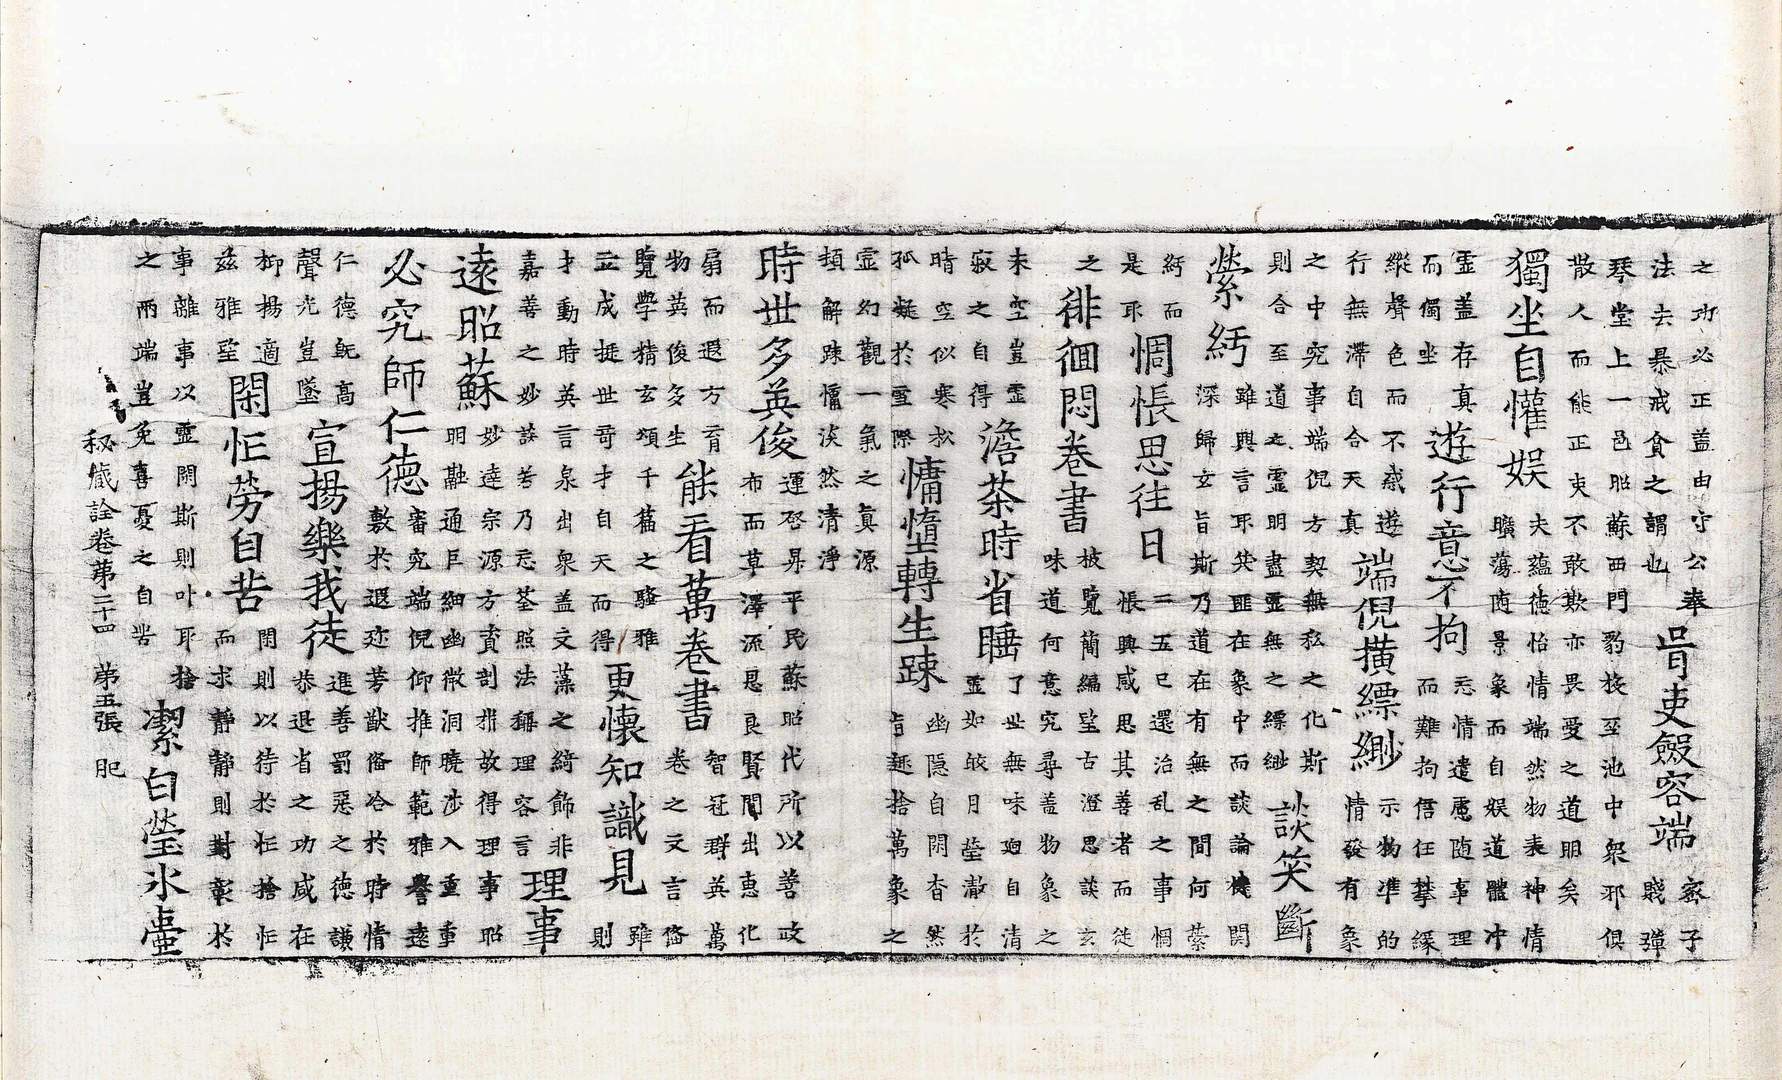 之功必正蓋由守公奉
法去暴戒貪之謂也
胥吏斂容端
宓子
賤彈
琴堂上一邑昭蘇西門豹投至池中衆邪俱
散人而能正吏不敢欺亦畏愛之道明矣
獨坐自懽娛
夫蘊德怡情端然物表神情
曠蕩適景象而自娛道體沖
靈盖存真
而獨坐
遊行意不拘
忘情遣慮随事理
而難拘信任攀緣
縱聲色而不惑遊
行無滯自合天真
端倪横縹緲
示物准的
情發有象
之中究事端倪方契無私之化斯
則合至道之靈明盡靈無之縹緲
談笑斷
縈紆
雖與言耳笑匪在象中而談論機関
深歸玄旨斯乃道在有無之間何縈
紆而
是耳
惆悵思往日
三五已還治乱之事惆
悵興感思其善者而徒
之
徘徊悶卷書
披覽簡編望古澄思談玄
味道何意究尋盖物象之
未空豈靈
寂之自得
澹茶時省睡
了世無味廻自清
靈如皎月瑩澈於
晴空似寒松
孤凝於雪際
慵墮轉生踈
幽隱自閑杳然
旨趣捨萬象之
靈幻觀一氣之真源
頓解踈慵淡然清淨
時世多英俊
運啓昇平民蘇昭代所以善政
布而草澤流恩良賢間出惠化
扇而遐方育
物英俊多生
能看萬卷書
智冠群英萬
卷之文言俻
覽學精玄頌千舊之騷雅
並成挺世奇才自天而得
更懷知識見
雖
則
才動時英言泉出衆盖文藻之綺飾非
嘉善之妙談若乃忘筌照法理容言
理事
遠昭蘇
妙達宗源方賾剖推故得理事昭
明融通巨細幽微洞曉涉入重重
必究師仁德
審究端倪仰推師範雅譽遠
敷於遐迩芳猷俻洽於時情
仁德既高
聲光豈墜
宣揚樂我徒
進善罰惡之德謙
恭退省之功咸在
抑揚適
茲雅望
閑忙勞自苦
閑則以待於忙捨忙
而求靜靜則對彰於
事離事以靈閑斯則叶耳捨
之兩端豈免喜憂之自苦
潔白瑩氷壷
秘藏詮卷第二十四 第五張 肥